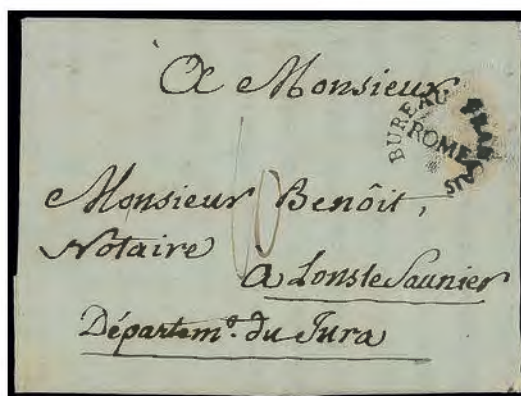 A Monsieur
BUREAU FRANÇAIS
ROME
Monsieur Benôit,
Notaire
10
à Lons le Saunier
Départem.º du Jura